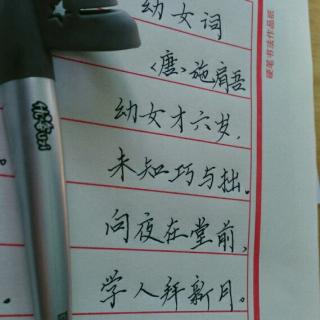 幼女词
<唐>施肩吾
幼女才六岁,
未知巧与拙。
向夜在堂前,
学人拜新月。
硬笔书法作品纸